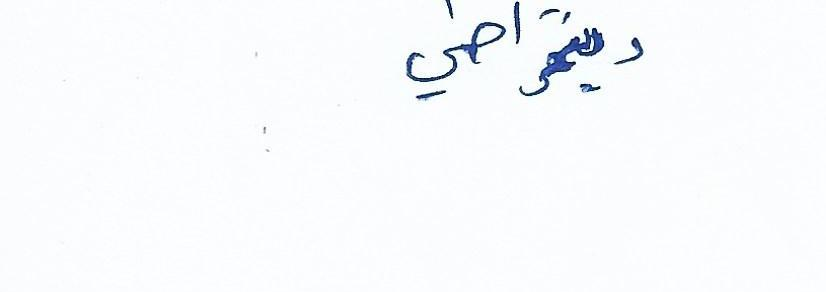 ديمقراطي